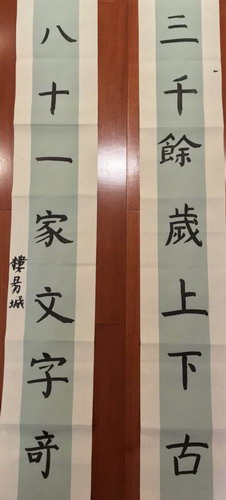 三千餘歲上下古
八十一家文字奇